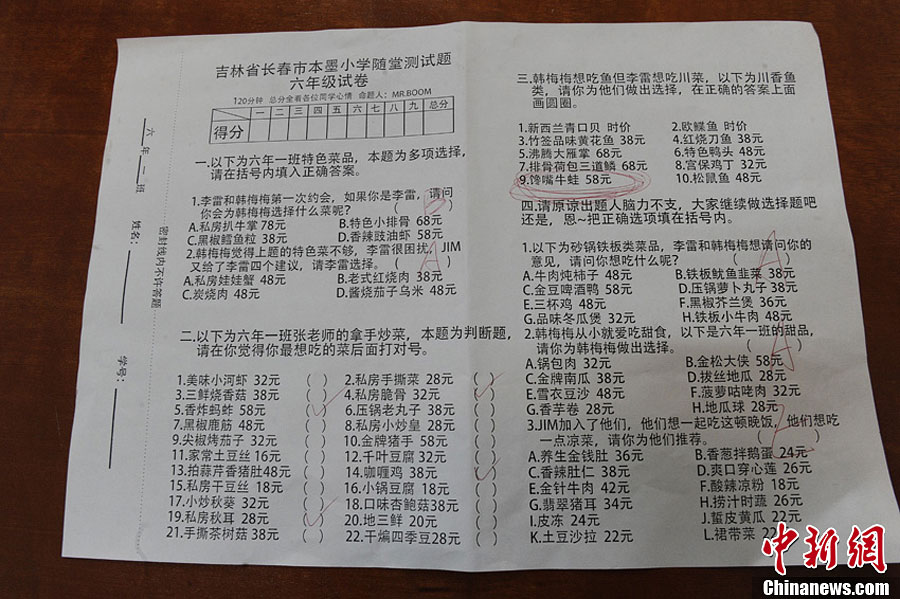 吉林省长春市本墨小学随堂测试题
六年级试卷
120分钟 总分全看各位同学心情 命题人：MR.BOOM
一 二 三 四 五 六 七 八 九 总分
得分
六年二班
姓名：
学号：
密封线内不许答题
一.以下为六年一班特色菜品，本题为多项选择，
请在括号内填入正确答案。
1.李雷和韩梅梅第一次约会，如果你是李雷，请问
你会为韩梅梅选择什么菜呢？ （B）
A.私房扒牛掌78元 B.特色小排骨 68元
C.黑椒鳕鱼粒 38元 D.香辣豉油虾 58元
2.韩梅梅觉得上题的特色菜不够，李雷很困扰，JIM
又给了李雷四个建议，请李雷选择。 （A）
A.私房娃娃蟹 48元 B.老式红烧肉 38元
C.炭烧肉 48元 D.酱烧茄子乌米 48元
二.以下为六年一班张老师的拿手炒菜，本题为判断题，
请在你觉得你最想吃的菜后面打对号。
1.美味小河虾 32元 （ ） 2.私房手撕菜 28元 （ ）
3.三鲜烧香菇 38元 （ ） 4.私房脆骨 32元 （ ）
5.香炸蚂蚱 58元 （ ） 6.压锅老丸子 38元 （ ）
7.黑椒鹿筋 48元 （ ） 8.私房小炒皇 28元 （ ）
9.尖椒烤茄子 32元 （ ） 10.金牌猪手 58元 （ ）
11.家常土豆丝 16元 （ ） 12.千叶豆腐 32元 （ ）
13.拍蒜芹香猪肚48元 （ ） 14.咖喱鸡 38元 （ ）
15.私房干豆丝 18元 （ ） 16.小锅豆腐 18元 （ ）
17.小炒秋葵 32元 （ ） 18.口味杏鲍菇38元 （ ）
19.私房秋耳 28元 （ ） 20.地三鲜 20元 （ ）
21.手撕茶树菇 38元 （ ） 22.干煸四季豆28元 （ ）
三.韩梅梅想吃鱼但李雷想吃川菜，以下为川香鱼
类，请你为他们做出选择，在正确的答案上面
画圆圈。
1.新西兰青口贝 时价 2.欧鲽鱼 时价
3.竹签品味黄花鱼 38元 4.红烧刀鱼 38元
5.沸腾大雁掌 68元 6.特色鸭头 48元
7.排骨荷包三道鳞 68元 8.宫保鸡丁 32元
9.馋嘴牛蛙 58元 10.松鼠鱼 48元
四.请原谅出题人脑力不支，大家继续做选择题吧
还是，恩~把正确选项填在括号内。
1.以下为砂锅铁板类菜品，李雷和韩梅梅想请问你的
意见，请问你想吃什么呢？ （A）
A.牛肉炖柿子 48元 B.铁板鱿鱼韭菜 38元
C.金豆啤酒鸭 58元 D.压锅萝卜丸子38元
E.三杯鸡 48元 F.黑椒芥兰煲 36元
G.品味冬瓜煲 32元 H.铁板小牛肉 48元
2.韩梅梅从小就爱吃甜食，以下是六年一班的甜品，
请你为韩梅梅做出选择。 （A）
A.锅包肉 32元 B.金松大侠 58元
C.金牌南瓜 38元 D.拔丝地瓜 28元
E.雪衣豆沙 48元 F.菠萝咕咾肉 32元
G.香芋卷 28元 H.地瓜球 28元
3.JIM加入了他们，他们想一起吃这顿晚饭，他们想吃
一点凉菜，请你为他们推荐。 （ ）
A.养生金钱肚 36元 B.香葱拌鹅蛋 24元
C.香辣肚仁 38元 D.爽口穿心莲 26元
E.金针牛肉 42元 F.酸辣凉粉 18元
G.翡翠猪耳 34元 H.捞汁时蔬 26元
I.皮冻 24元 J.蜇皮黄瓜 22元
K.土豆沙拉 22元 L.裙带菜 22元
中新网
Chinanews.com